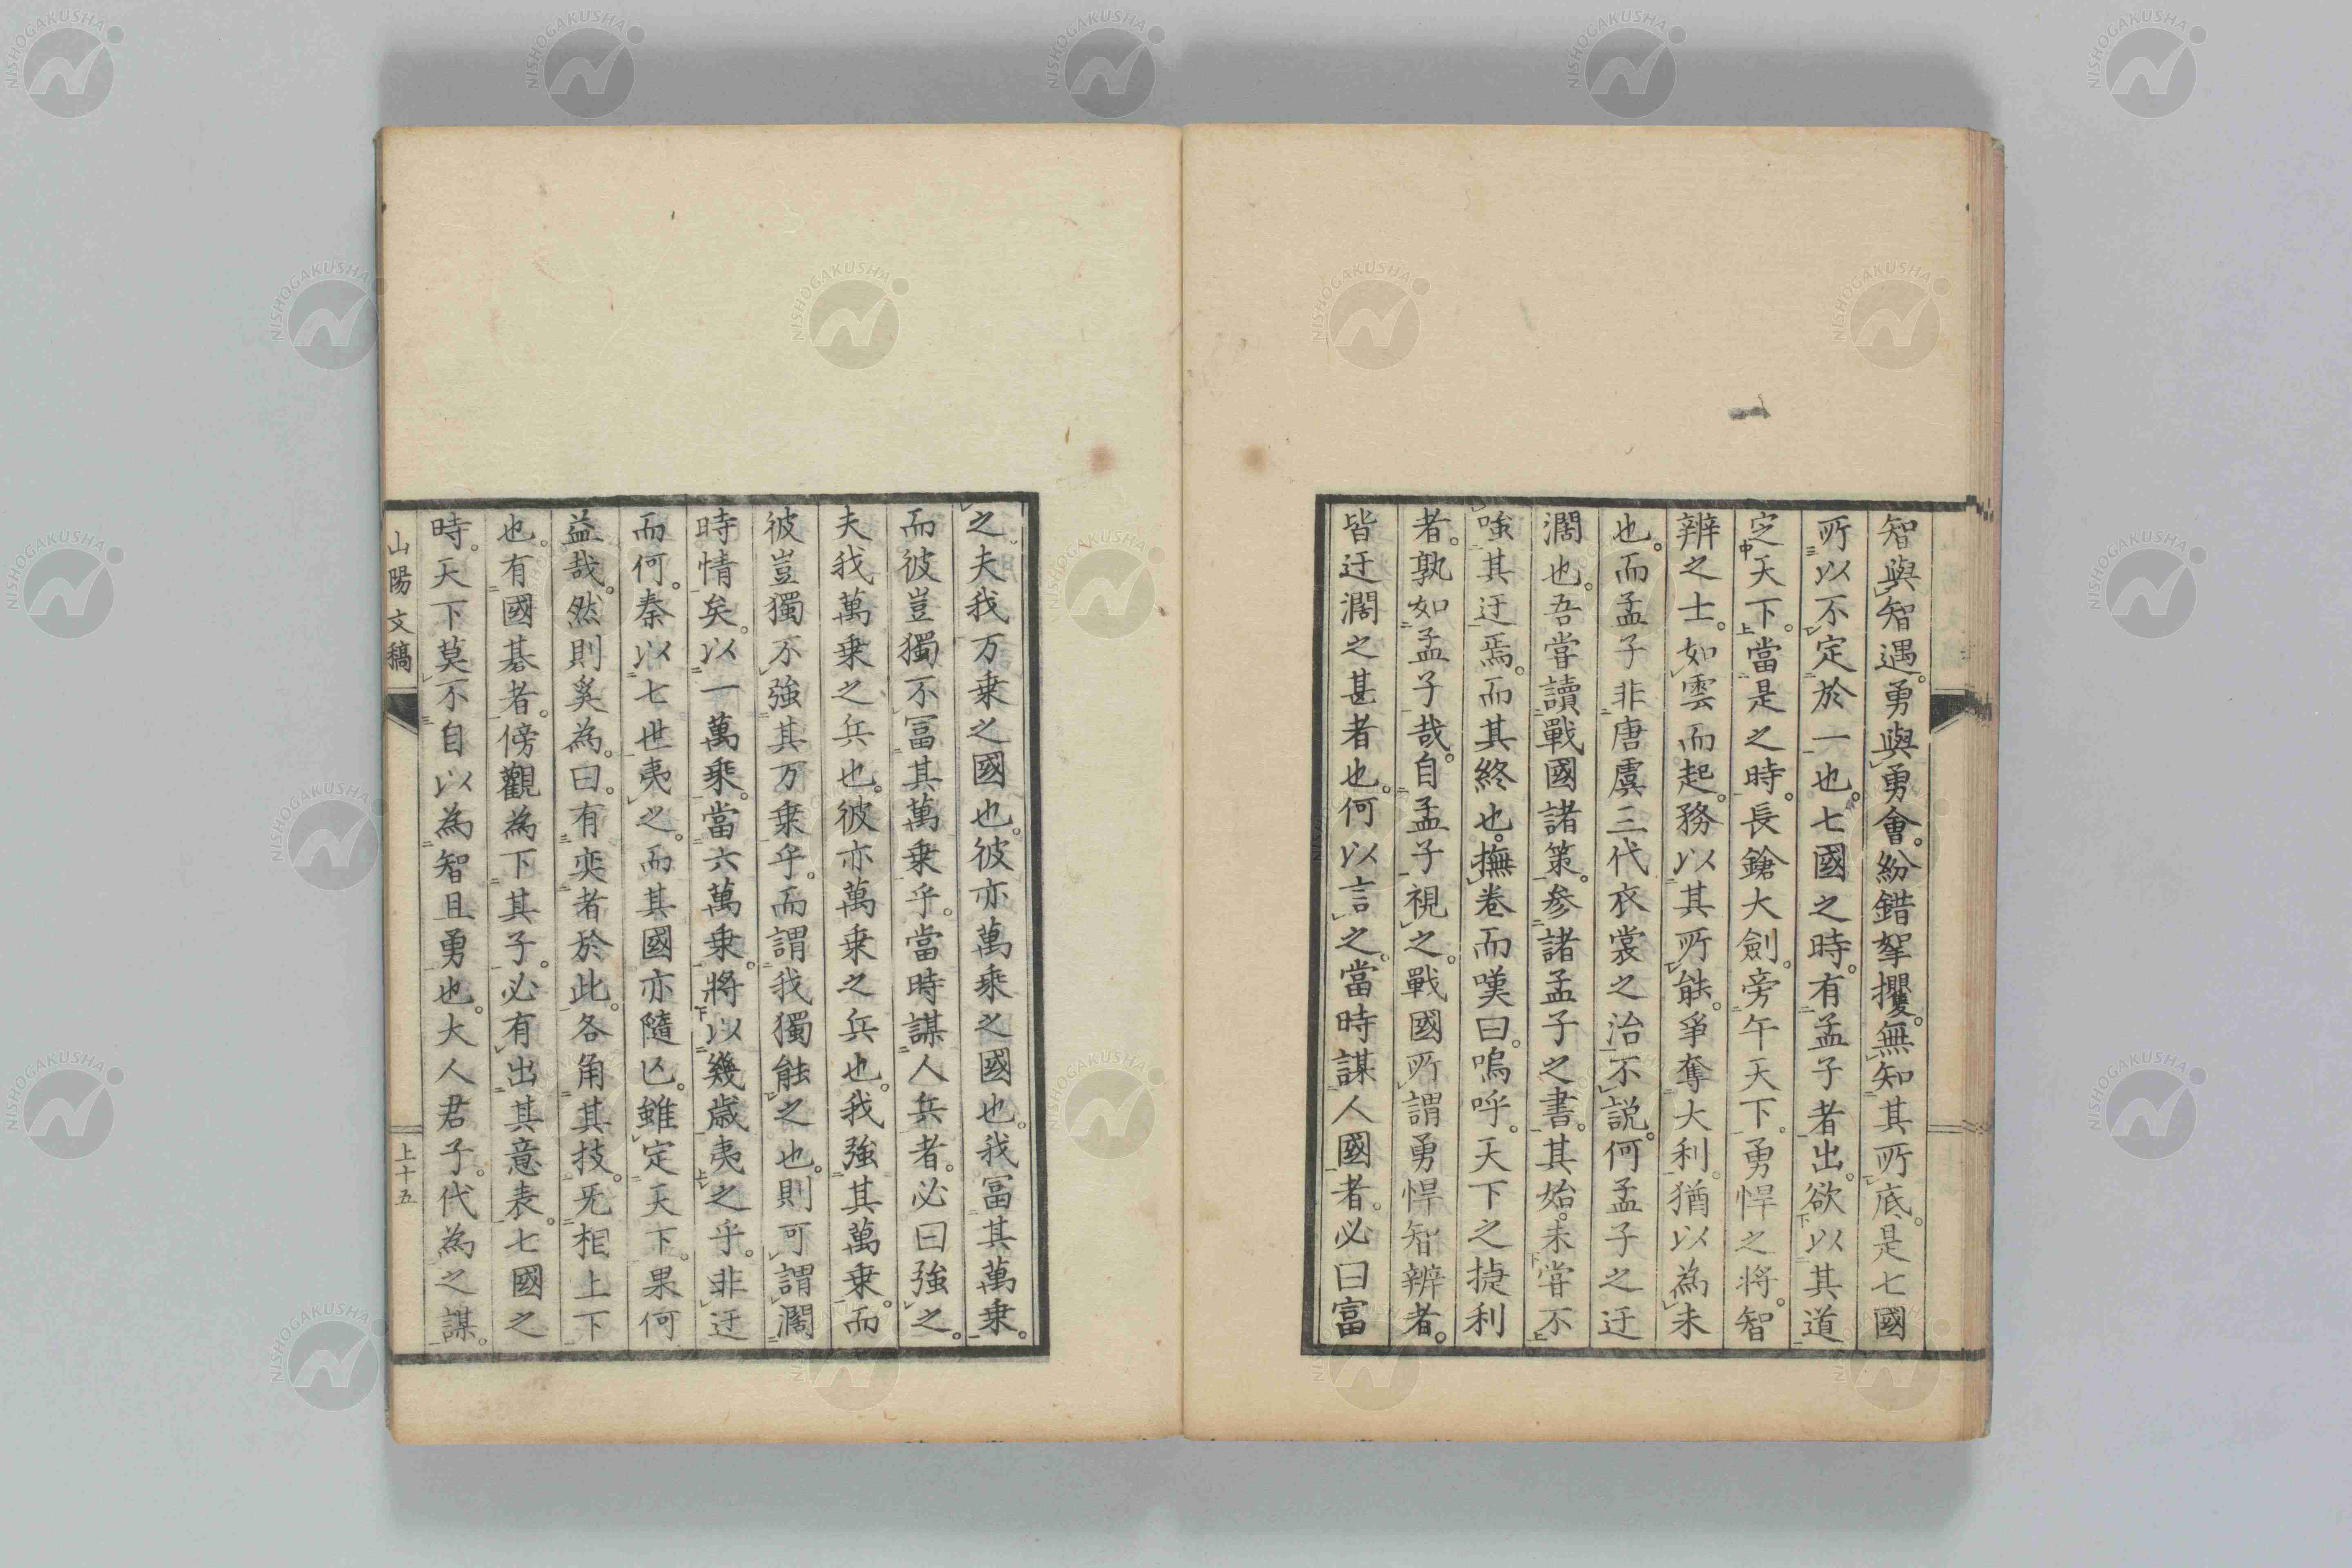 智與智遇。勇與勇會。紛錯挐攫。無知其所底。是七國
所以不定於一也。七國之時。有孟子者出。欲以其道
定天下。當是之時。長鎗大劍。旁午天下。勇悍之将。智
辨之士。如雲而起。務以其所能。爭奪大利。猶以為未
也。而孟子非唐虞三代衣裳之治不説。何孟子之迂
濶也。吾甞讀戰國諸策。参諸孟子之書。其始。未甞不
嗤其迂焉。而其終也。撫巻而嘆曰。嗚呼。天下之捷利
者。孰如孟子哉。自孟子視之。戰國所謂勇悍智辨者。
皆迂濶之甚者也。何以言之。當時謀人國者。必曰富
之夫我万乗之國也。彼亦萬乘之國也。我冨其萬乗。
而彼豈獨不冨其萬乗乎。當時謀人兵者。必曰強之。
夫我萬乗之兵也。彼亦萬乗之兵也。我強其萬乗。而
彼豈獨不強其万乗乎。而謂我獨能之也。則可謂濶
時情矣。以一萬乘。當六萬乗。將以幾歳夷之乎。非迂
而何。秦以七世夷之。而其國亦隨亾。雖定天下。果何
益哉。然則奚為。曰。有奕者於此。各角其技。旡相上下
也。有國碁者。傍觀為下其子。必有出其意表。七國之
時。天下莫不自以為智且勇也。大人君子。代為之謀。
山陽文稿
上十五
NISHOGAKUSHA